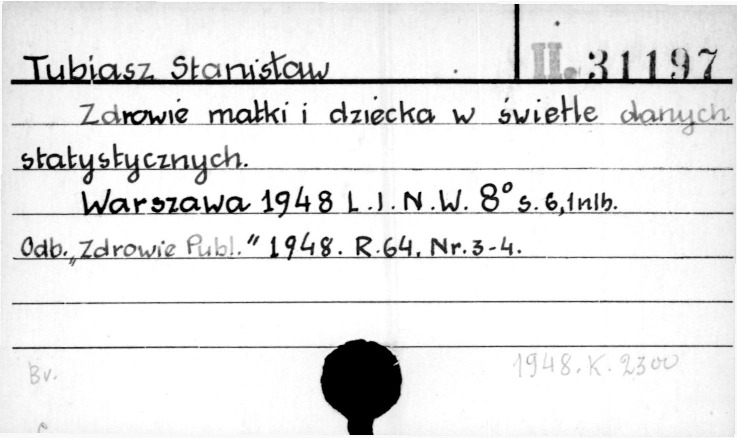 II. 31197
Tubiasz Stanisław
Zdrowie matki i dziecka w świetle danych
statystycznych.
Warszawa 1948 L.I.N.W. 8° s. 6, 1 nlb.
Odb. „Zdrowie Publ." 1948. R. 64. Nr. 3-4.
Bv.
1948. K. 2300